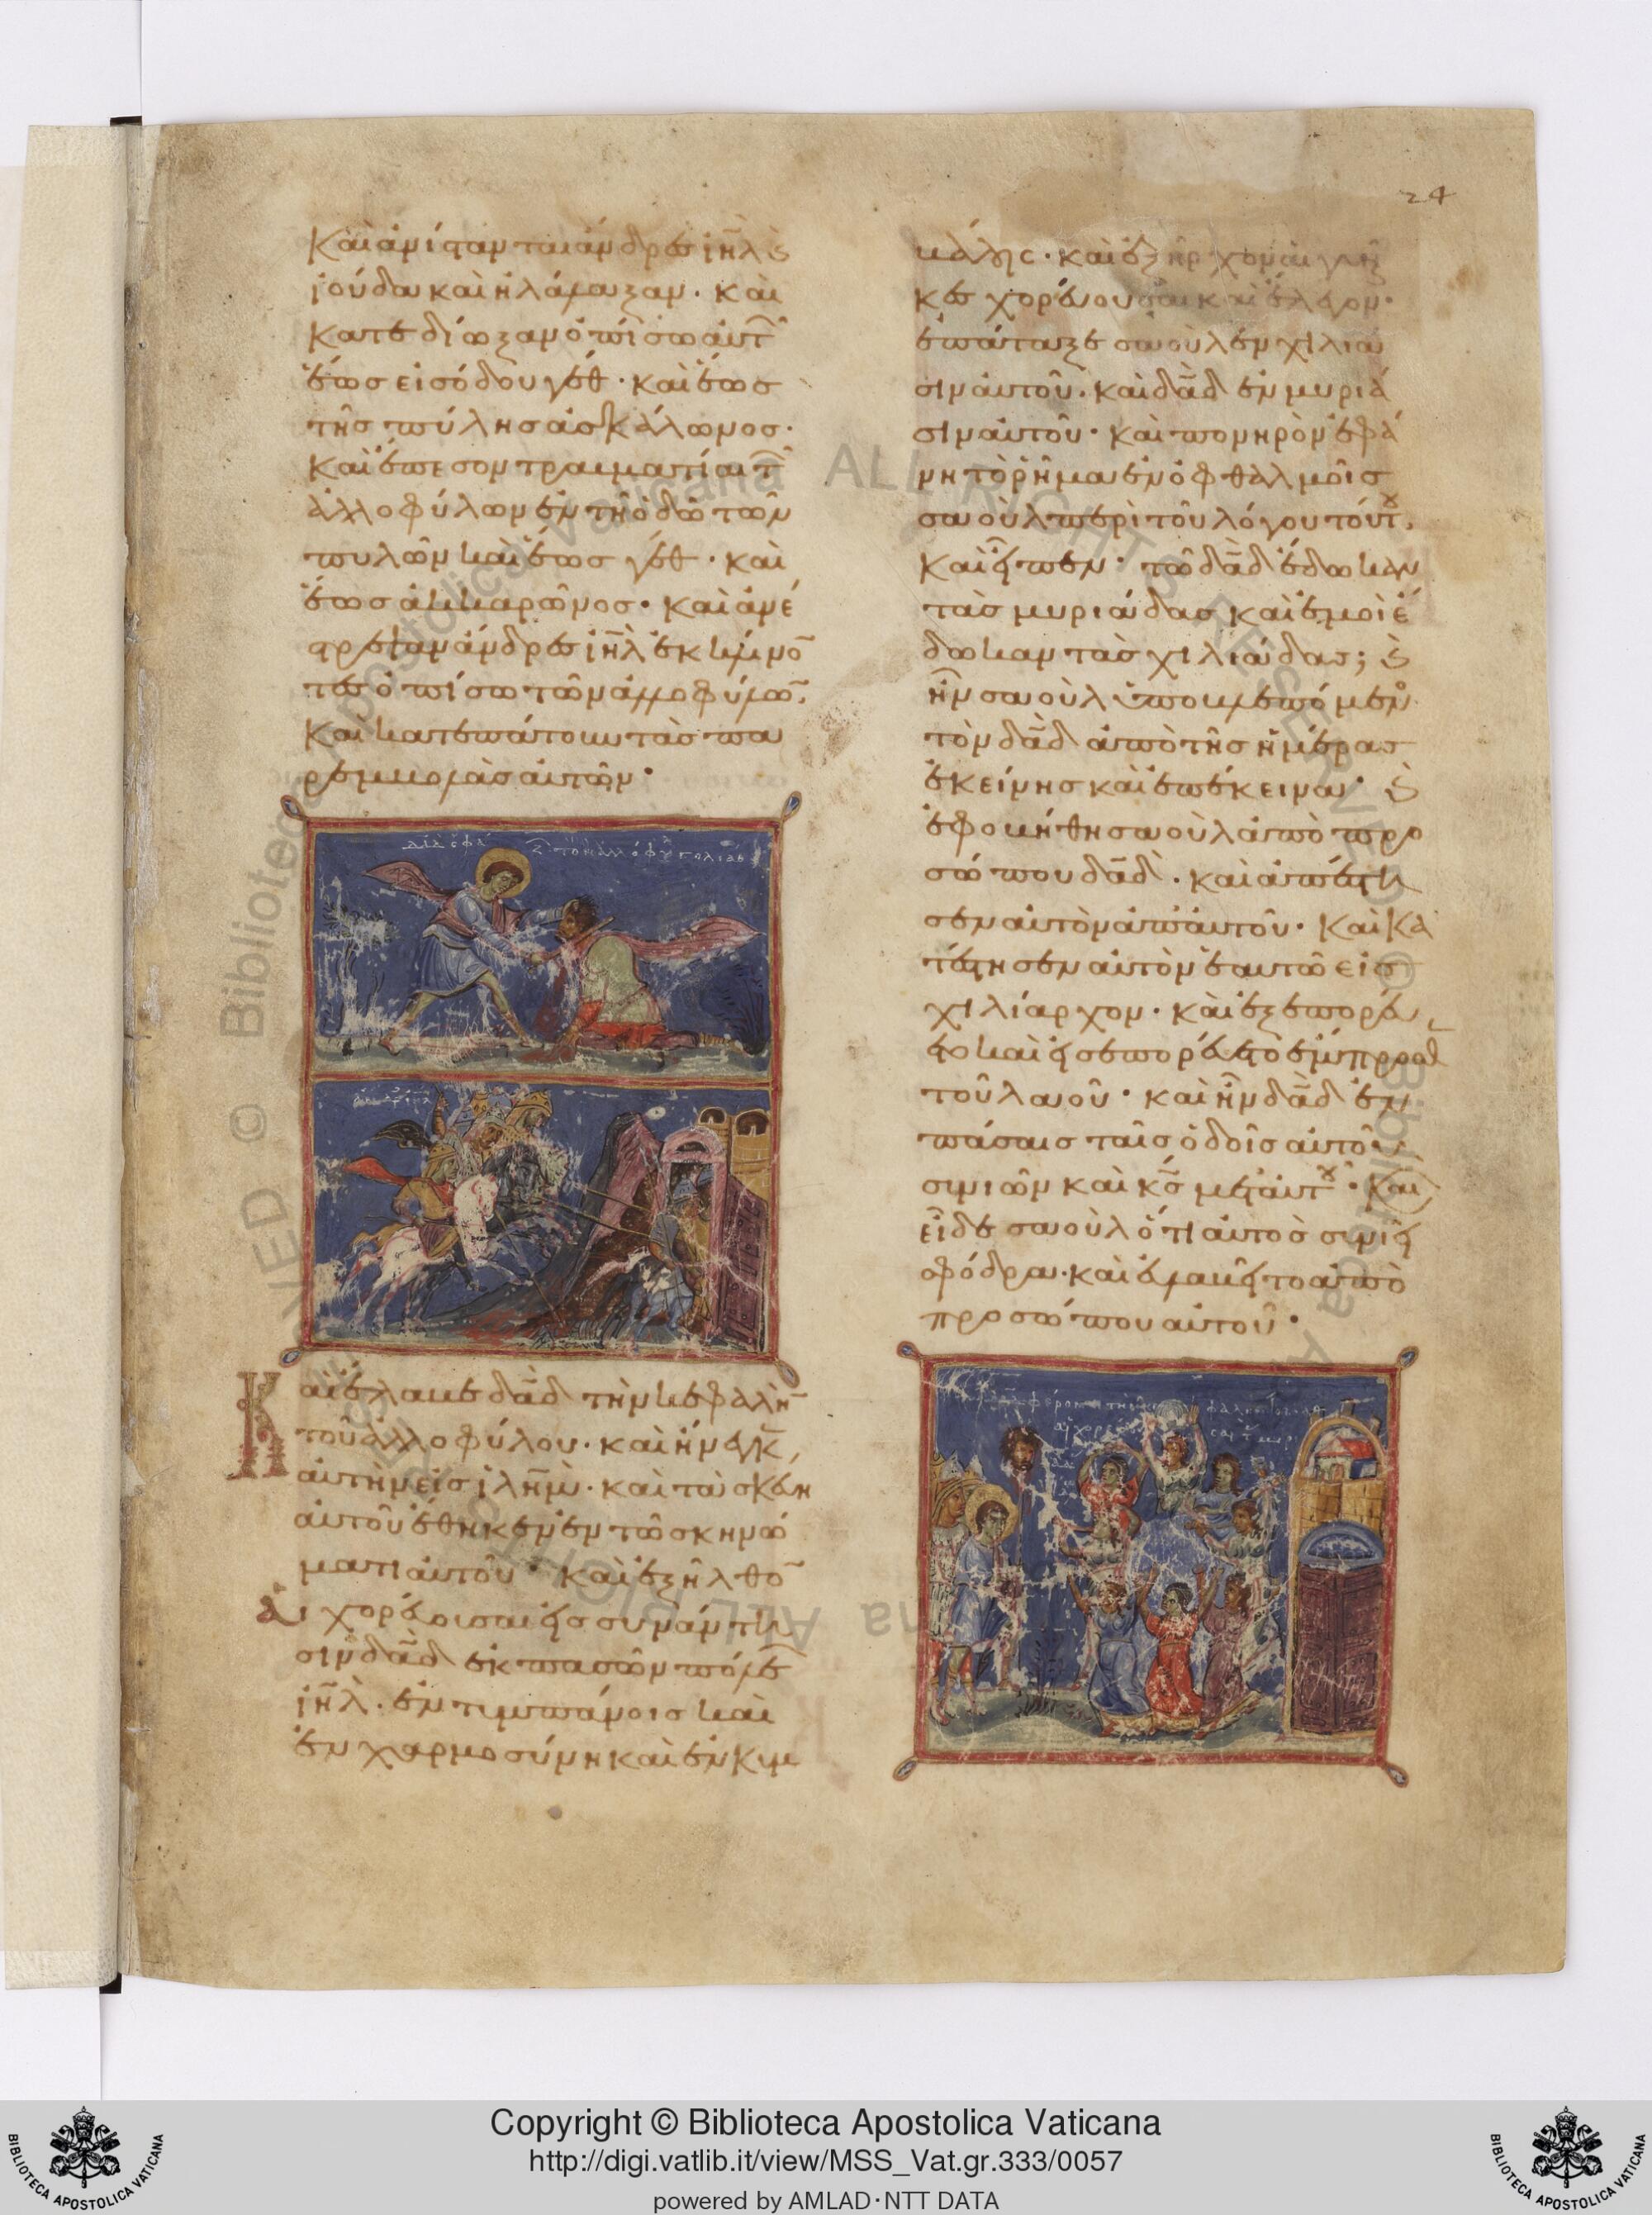 24
Καὶ ἀνίστανται ἄνδρες ἰη̅λ ϗ
ἰούδα καὶ ἠλάλαξαν. καὶ
κατεδίωξαν ὀπίσω αὐτ
ἕως εἰσόδου γέθ. καὶ ἕως
τῆς πύλης ἀσκάλωνος.
Καὶ ἔπεσον τραυματίαι τ
ἀλλοφύλων ἐν τῆ ὁδῶ τῶν
πυλῶν καὶ ἕως γέθ. καὶ
ἕως ἀκκαρῶνος. καὶ ἀνέ
στρεψαν ἄνδρες ἰη̅λ ἐκκλίνο̅
τες ὀπίσω τῶν ἀλλοφύλω̅.
Καὶ κατεπάτουν τὰς πα
ρεμβολὰς αὐτῶν.
Καὶ ἔλαβε δα̅δ τὴν κεφαλὴ̅
τοῦ ἀλλοφύλου. καὶ ἤνεγκ
αὐτὴν εἰς ἰλη̅μ. καὶ τὰ σκεύη
αὐτοῦ ἔθηκεν ἐν τῶ σκηνώ
ματι αὐτοῦ. καὶ ἐξῆλθο̅
αἱ χορεύουσαι εἰς συνάντη
σιν δα̅δ ἐκ πασῶν πόλε
ἰη̅λ. ἐν τυμπάνοις καὶ
ἐν χαρμοσύνη καὶ ἐν κυμ
βάλοις. καὶ ἐξῆρχον αἱ γυναῖ
κες χορεύουσαι καὶ ἔλεγον.
ἐπάταξε σαοὺλ ἐν χιλιά
σιν αὐτοῦ. καὶ δα̅δ ἐν μυριά
σιν αὐτοῦ. καὶ πονηρὸν ἐφά
νη τὸ ῥῆμα ἐν ὀφθαλμοῖς
σαοὺλ περὶ τοῦ λόγου τούτου.
Καὶ εἶπεν. τῶ δα̅δ ἔδωκαν
τὰς μυριάδας καὶ ἐμοὶ ἔ
δωκαν τὰς χιλιάδας; ϗ
ἦν σαοὺλ ὑποβλεπόμενο
τὸν δα̅δ ἀπὸ τῆς ἡμέρας
ἐκείνης καὶ ἐπέκεινα. ϗ
ἐφοβήθη σαοὺλ ἀπὸ προ
σώπου δα̅δ. καὶ ἀπέστη
σεν αὐτὸν ἀπ' αὐτοῦ. καὶ κα
τέστησεν αὐτὸν ἑαυτῶ εἰς
χιλίαρχον. καὶ ἐξεπορεύ
ετο καὶ εἰσεπορεύετο ἔμπροσθ
τοῦ λαοῦ. καὶ ἦν δα̅δ ἐν
πάσαις ταῖς ὁδοῖς αὐτοῦ
συνιῶν καὶ κ̅ς μετ' αὐτοῦ. Και
εἶδε σαοὺλ ὅτι αὐτὸς συνιεῖ
σφόδρα. καὶ εὐλαβεῖτο ἀπὸ
προσώπου αὐτοῦ.
Copyright © Biblioteca Apostolica Vaticana
http://digi.vatlib.it/view/MSS_Vat.gr.333/0057
powered by AMLAD · NTT DATA
BIBLIOTECA APOSTOLICA VATICANA
BIBLIOTECA APOSTOLICA VATICANA